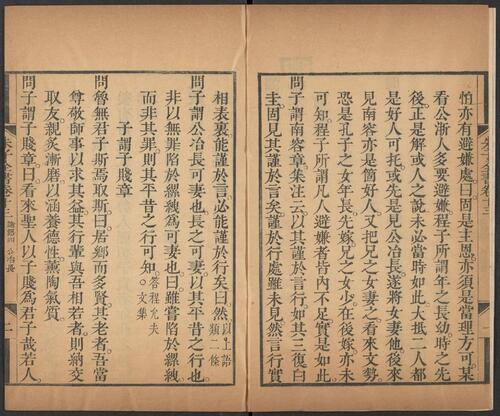 怕亦有避嫌處曰固是主恩亦須是當理方可某
看公浙人多要避嫌程子所謂年之長幼時之先
後正是解或人之說未必當時如此大抵二人都
是好人可托或先是見公冶長遂將女妻他後來
見南容亦是箇好人又把兄之女妻之看來文勢
恐是孔子之女年長先嫁兄之女少在後嫁亦未
可知程子所謂凡人避嫌者皆內不足實是如此
問子謂南容章集注云以其謹於言行如其三復白
圭固見其謹於言矣謹於行處雖未見然言行實
相表裏能謹於言必能謹於行矣曰然以上語類二條
問子謂公冶長可妻也長之可妻以其平昔之行也
非以無罪陷於縲絏為可妻也曰雖嘗陷於縲絏
而非其罪則其平昔之行可知答程允夫文集
子謂子賤章
問魯無君子斯焉取斯曰居鄉而多賢其老者吾當
尊敬師事以求其益其行輩與吾相若者則納交
取友親炙漸磨以涵養德性薰陶氣質
問子賤章曰看來聖人以子賤為君子哉若人
論語四 公冶長